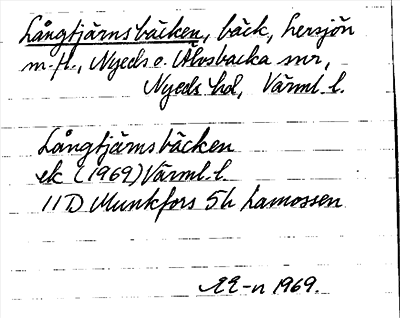 Långtjärnsbäcken, bäck, Lersjön
m.fl., Nyeds o. Älvsbacka snr,
Nyeds hd, Värml. l.
Långtjärnsbäcken
ek (1969) Värml. l.
11D Munkfors 5h Lamossen
1969.